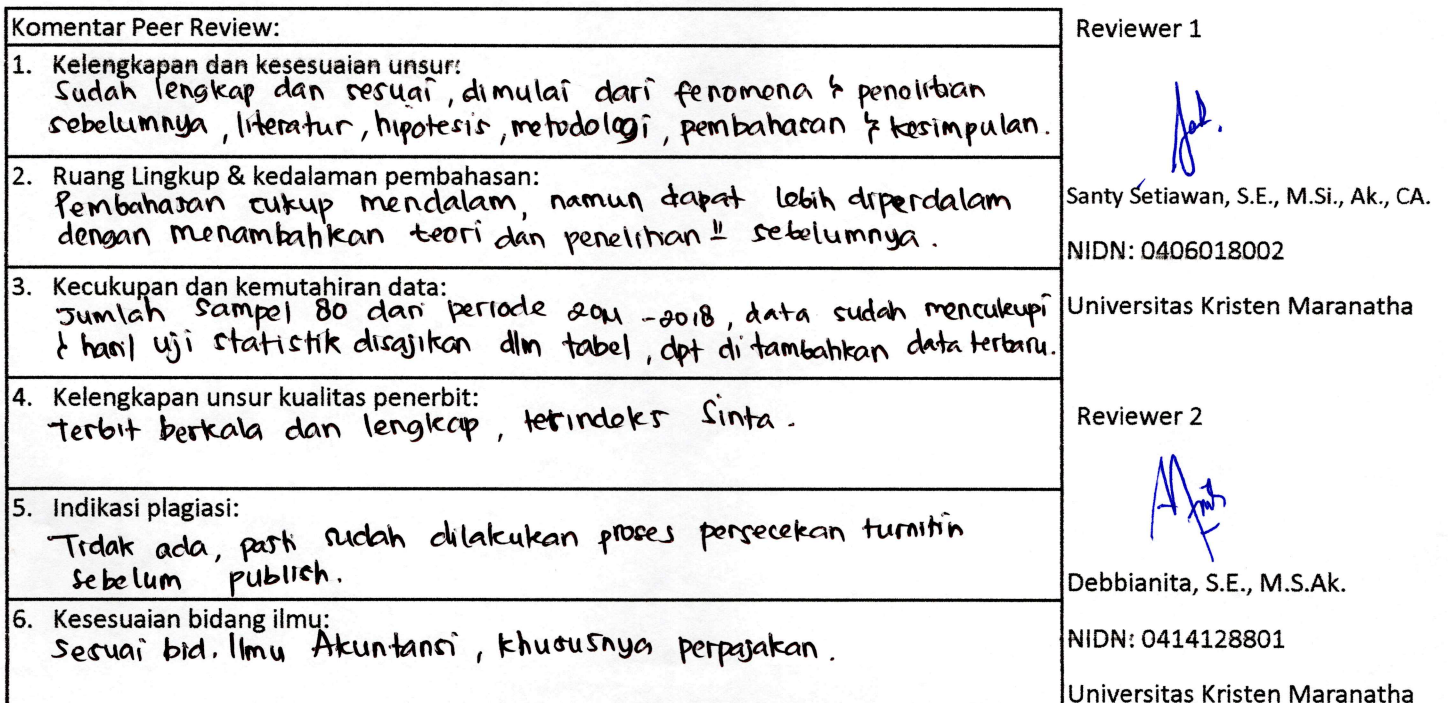 Komentar Peer Review:
1. Kelengkapan dan kesesuaian unsur:
Sudah lengkap dan sesuai, dimulai dari fenomena & penelitian
sebelumnya, literatur, hipotesis, metodologi, pembahasan & kesimpulan.
2. Ruang Lingkup & kedalaman pembahasan:
Pembahasan cukup mendalam, namun dapat lebih diperdalam
dengan menambahkan teori dan penelitian" sebelumnya.
3. Kecukupan dan kemutahiran data:
Jumlah sampel 80 dari periode 2011-2018, data sudah mencukupi
& hasil uji statistik disajikan dlm tabel, dpt di tambahkan data terbaru.
4. Kelengkapan unsur kualitas penerbit:
Terbit berkala dan lengkap, terindeks Sinta.
5. Indikasi plagiasi:
Tidak ada, pasti sudah dilakukan proses pengecekan turnitin
sebelum publish.
6. Kesesuaian bidang ilmu:
Sesuai bid. Ilmu Akuntansi, khususnya perpajakan.
Reviewer 1
Santy Setiawan, S.E., M.Si., Ak., CA.
NIDN: 0406018002
Universitas Kristen Maranatha
Reviewer 2
Debbianita, S.E., M.S.Ak.
NIDN: 0414128801
Universitas Kristen Maranatha